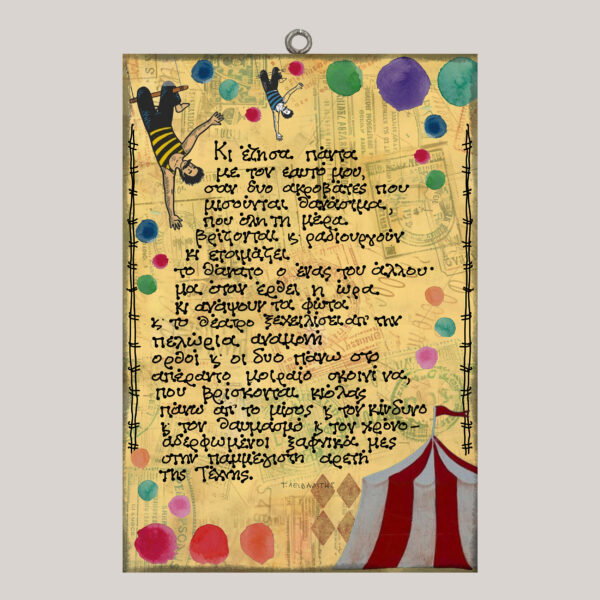 Κι έζησα πάντα
με τον εαυτό μου,
σαν δυο ακροβάτες που
μισούνται θανάσιμα,
που όλη τη μέρα
βρίζονται κ ραδιουργούν
κι ετοιμάζει
το θάνατο ο ένας του άλλου·
μα όταν έρθει η ώρα
κι ανάψουν τα φώτα
κ το θέατρο ξεχειλίσει απ' την
πελώρια αναμονή
ορθοί κ οι δυο πάνω στο
απέραντο μοιραίο σκοινί να,
που βρίσκονται κιόλας
πάνω απ' το μίσος κ τον κίνδυνο
κ τον θαυμασμό κ τον χρόνο–
αδερφωμένοι ξαφνικά μες
στην παμμέγιστη αρετή
της Τέχνης.
Τ. ΛΕΙΒΑΔΙΤΗΣ